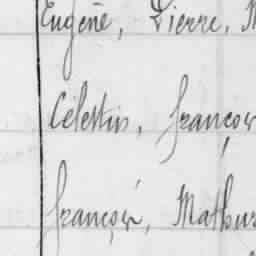 Eugène, Pierre, M
Célestin, françois
françois, Mathur